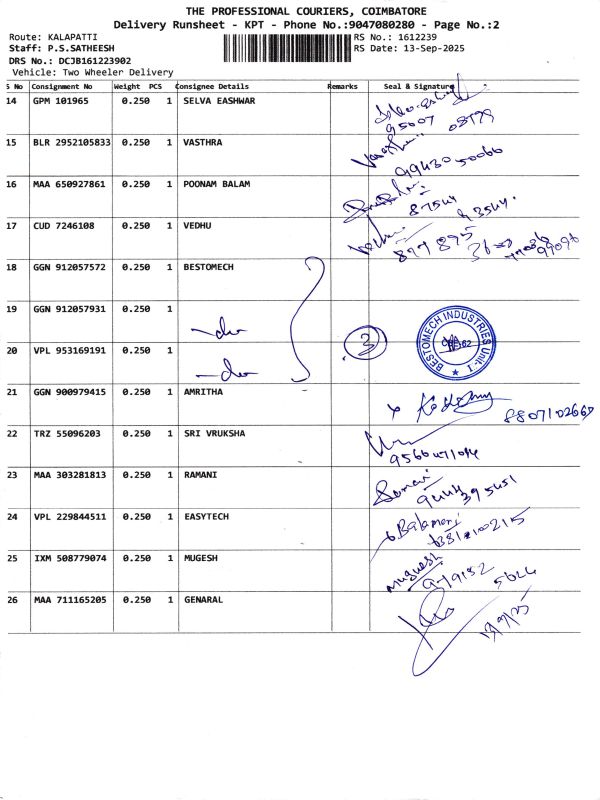 THE PROFESSIONAL COURIERS, COIMBATORE
Delivery Runsheet - KPT - Phone No.:9047080280 - Page No.:2
Route: KALAPATTI
RS No.: 1612239
Staff: P.S.SATHEESH
RS Date: 13-Sep-2025
DRS No.: DCJB161223902
Vehicle: Two Wheeler Delivery
S No Consignment No Weight PCS Consignee Details Remarks Seal & Signature
14 GPM 101965 0.250 1 SELVA EASHWAR
95007
15 BLR 2952105833 0.250 1 VASTHRA
9943050066
16 MAA 650927861 0.250 1 POONAM BALAM
87544 43544.
17 CUD 7246108 0.250 1 VEDHU
18 GGN 912057572 0.250 1 BESTOMECH
19 GGN 912057931 0.250 1
-do-
BESTOMECH INDUSTRIES Unit-I
20 VPL 953169191 0.250 1
-do-
3
21 GGN 900979415 0.250 1 AMRITHA
8807102667
22 TRZ 55096203 0.250 1 SRI VRUKSHA
23 MAA 303281813 0.250 1 RAMANI
Ramani
9444395451
24 VPL 229844511 0.250 1 EASYTECH
Balamani
25 IXM 508779074 0.250 1 MUGESH
Mugesh
26 MAA 711165205 0.250 1 GENARAL
13/9/25